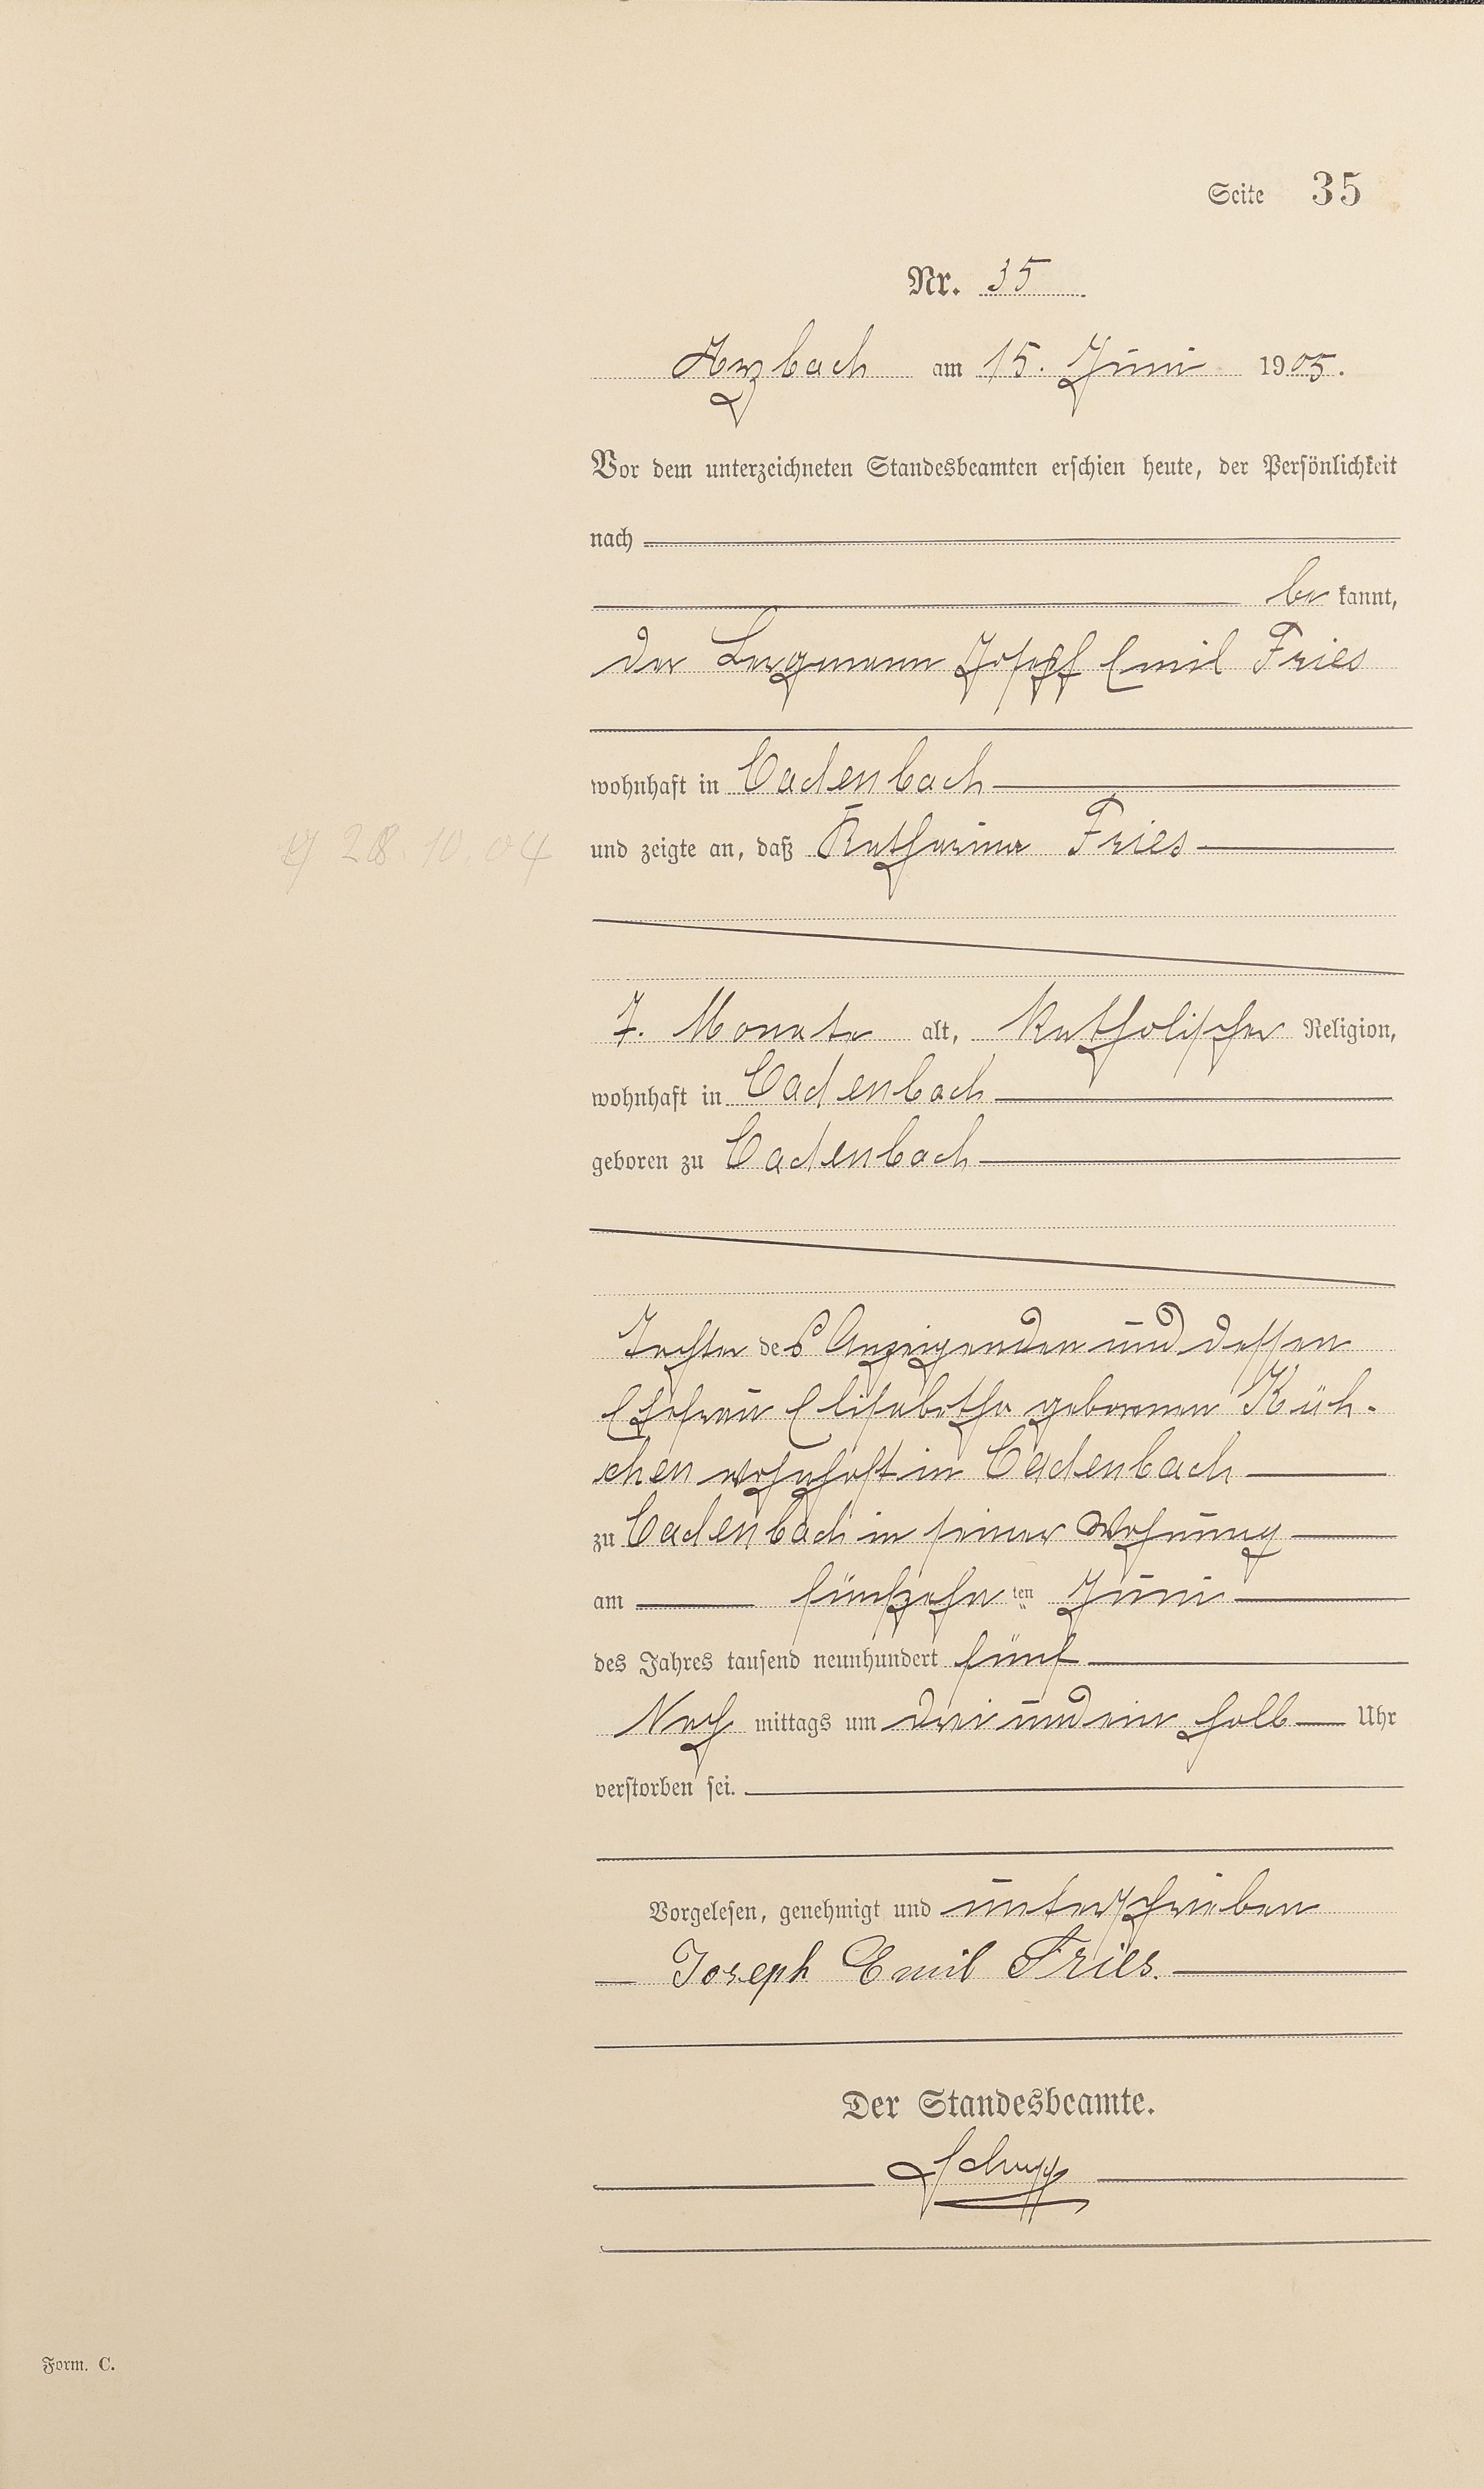 Seite 35
Nr. 35
Arzbach am 15. Juni 1905.
Vor dem unterzeichneten Standesbeamten erschien heute, der Persönlichkeit
nach
be kannt,
der Bergmann Joseph Emil Fries
wohnhaft in Cadenbach
g 28.10.04
und zeigte an, daß Katharina Fries
7. Monate alt, katholischer Religion,
wohnhaft in Cadenbach
geboren zu Cadenbach
Tochter des Anzeigenden und dessen
Ehefrau Elisabetha geborenen Küh-
chen wohnhaft in Cadenbach
zu Cadenbach in seiner Wohnung
am fünfzehn ten Juni
des Jahres tausend neunhundert fünf
Nach mittags um drei und ein halb Uhr
verstorben sei.
Vorgelesen, genehmigt und unterschrieben
Joseph Emil Fries.
Der Standesbeamte.
Schupp
Form. C.